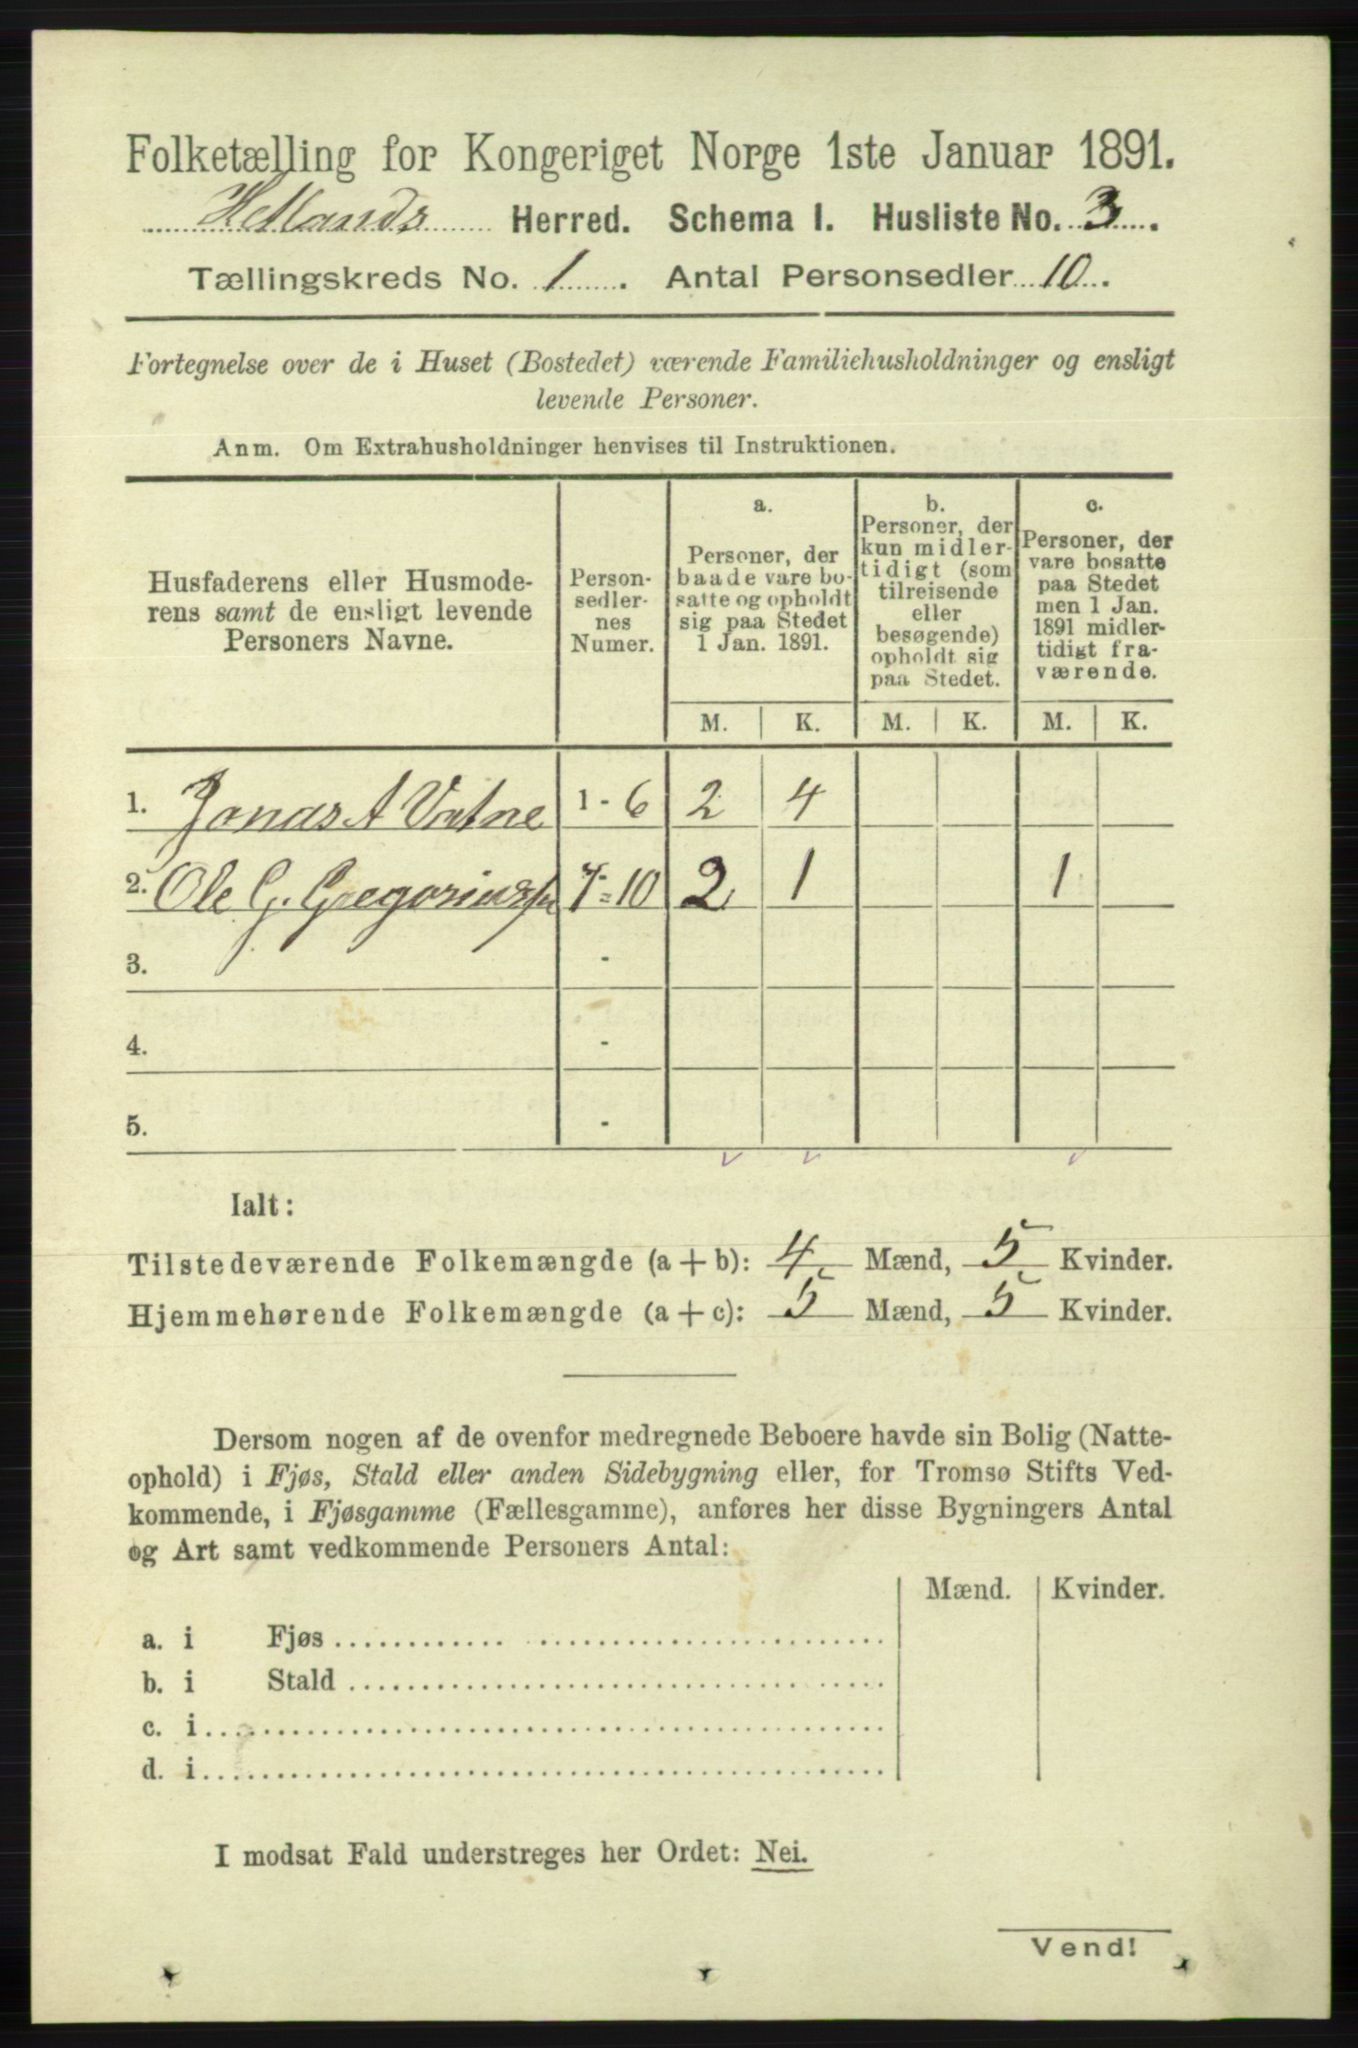 Folketælling for Kongeriget Norge 1ste Januar 1891.
Hetlands Herred. Schema I. Husliste No. 3.
Tællingskreds No. 1. Antal Personsedler 10.
Fortegnelse over de i Huset (Bostedet) værende Familiehusholdninger og ensligt
levende Personer.
Anm. Om Extrahusholdninger henvises til Instruktionen.
Husfaderens eller Husmode-
rens samt de ensligt levende
Personers Navne.
Person-
sedler-
nes
Numer.
a.
Personer, der
baade vare bo-
satte og opholdt
sig paa Stedet
1 Jan. 1891.
b.
Personer, der
kun midler-
tidigt (som
tilreisende
eller
besøgende)
opholdt sig
paa Stedet.
c.
Personer, der
vare bosatte
paa Stedet
men 1 Jan.
1891 midler-
tidigt fra-
værende.
M. K. M. K. M. K.
1. Jonas A Vatne 1 - 6 2 4
2. Ole G. Gregoriussen 7 - 10 2 1 1
3. -
4. -
5. -
Ialt:
Tilstedeværende Folkemængde (a + b): 4 Mænd, 5 Kvinder.
Hjemmehørende Folkemængde (a + c): 5 Mænd, 5 Kvinder.
Dersom nogen af de ovenfor medregnede Beboere havde sin Bolig (Natte-
ophold) i Fjøs, Stald eller anden Sidebygning eller, for Tromsø Stifts Ved-
kommende, i Fjøsgamme (Fællesgamme), anføres her disse Bygningers Antal
og Art samt vedkommende Personers Antal:
Mænd. Kvinder.
a. i Fjøs
b. i Stald
c. i
d. i
I modsat Fald understreges her Ordet: Nei.
Vend!